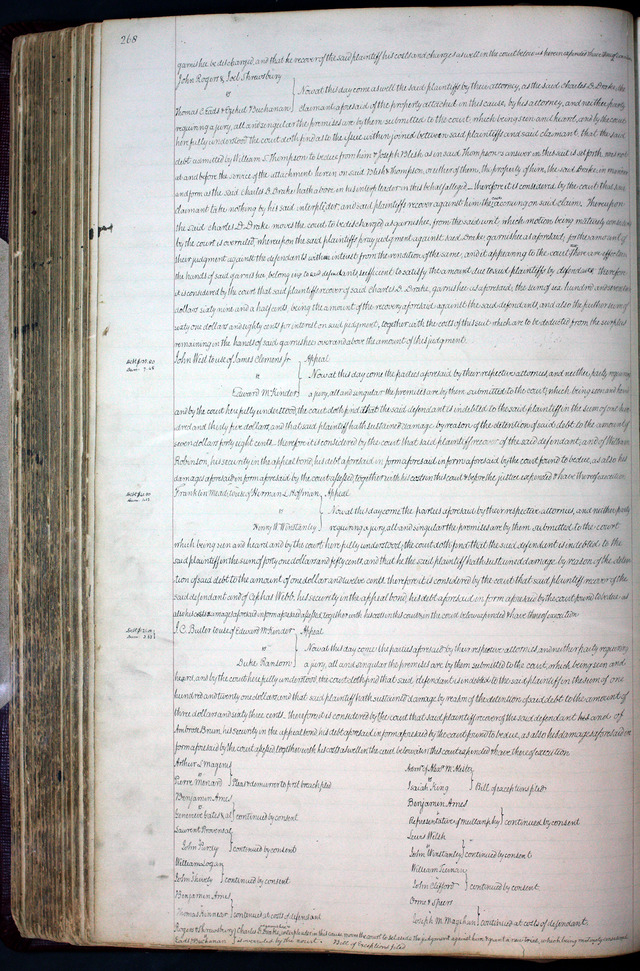 268
garnishee be discharged, and that he recover of the said plaintiff his costs and charges as well in the court below as herein expended & have
John Rogers & Joel Shrewsbury
vs
Thomas C. Eads & Ezekiel Buchanan
Now at this day come as well the said plaintiffs by their attorney, as the said Charles D. Drake, the
claimant aforesaid of the property attached in this cause, by his attorney, and neither party
requiring a jury, all and singular the premises are by them submitted to the court, which being seen and heard, and by the court
here fully understood the court doth find as to the issue within joined between said plaintiffs and said claimant, that the said
debt admitted by William S. Thompson to be due from him & Joseph Blish as in said Thompson's answer in this suit is set forth, was not
at and before the service of the attachment herein on said Blish & Thompson, or either of them, the property of him, the said Drake, in manner
and form as the said Charles D. Drake hath above in his interpleader in this behalf alleged. Therefore it is considered by the court that said
claimant take nothing by his said interpleader, and said plaintiffs recover against him the costs accruing on said claim. Thereupon
the said Charles D. Drake moves the court to be discharged as garnishee, from the said writ, which motion being maturely considered
by the court is overruled, whereupon the said plaintiffs pray judgment against said Drake garnishee as aforesaid, for the amount of
their judgment against the defendants with interest from the rendition of the same, and it appearing to the court there are effects in
the hands of said garnishee belonging to said defendants sufficient to satisfy the amount due to said plaintiffs by defendants therefore
it is considered by the court that said plaintiffs recover of said Charles D. Drake, garnishee as aforesaid, the sum of six hundred and seventeen
dollars sixty nine and a half cents, being the amount of the recovery aforesaid against the said defendants, and also the further sum of
sixty one dollars and eighty cents for interest on said judgment, together with the costs of this suit which are to be deducted from the surplus
remaining in the hands of said garnishee over and above the amount of this judgment.
John Weil to use of James Clemens Jr
vs
Edward McKinder
Appeal
Now at this day come the parties aforesaid by their respective attornies and neither party requiring
a jury, all and singular the premises are by them submitted to the court, which being seen and heard
and by the court here fully understood, the court doth find that the said defendant is indebted to the said plaintiff in the sum of one hun-
dred and thirty five dollars, and that said plaintiff hath sustained damage by reason of the detention of said debt to the amount of
seven dollars forty eight cents. Therefore it is considered by the court that said plaintiff recover of the said defendant, and of William
Robinson, his security in the appeal bond, his debt aforesaid in form aforesaid in form aforesaid by the court found to be due, as also his
damages aforesaid in form aforesaid by the court assessed, together with his costs in this court & before the justice expended & have thereof execution.
Franklin Meade to use of Herman L. Hoffman
vs
Henry W. Winstanley
Appeal
Now at this day come the parties aforesaid by their respective attornies, and neither party
requiring a jury, all and singular the premises are by them submitted to the court
which being seen and heard and by the court here fully understood, the court doth find that the said defendant is indebted to the
said plaintiff in the sum of forty one dollars and fifty cents, and that he the said plaintiff hath sustained damage by reason of the deten-
tion of said debt to the amount of one dollar and twelve cents, therefore it is considered by the court that said plaintiff recover of the
said defendant and of Cephas Webb, his security in the appeal bond, his debt aforesaid in form aforesaid by the court found to be due as
also his damages aforesaid in form aforesaid assessed, together with his costs in this court & in the court below expended & have thereof execution.
J. C. Butler to use of Edward McKinder
vs
Duke Ransom
Appeal
Now at this day come the parties aforesaid by their respective attornies and neither party requiring
a jury, all and singular the premises are by them submitted to the court, which being seen and
heard and by the court here fully understood, the court doth find that said defendant is indebted to the said plaintiff in the sum of one
hundred and twenty one dollars, and that said plaintiff hath sustained damage by reason of the detention of said debt to the amount of
three dollars and sixty three cents, therefore it is considered by the court that said plaintiff recover of the said defendant and of
his security in the appeal bond his debt aforesaid in form aforesaid by the court found to be due, as also his damages aforesaid in
form aforesaid by the court assessed together with his costs as well in the court below as in this court expended & have thereof execution.
Arthur L. Magenis
vs
Pierre Menard
Plea & demurrer to pt of breach filed
Benjamin Ames
vs
Genevieve Bates & al
continued by consent
Laurent Provensal
vs
John Hardy
continued by consent
William Logan
vs
John Shirely
continued by consent
Benjamin Ames
vs
Thomas Kinnear
continued at costs of defendant
Isaiah King
Bill of exceptions filed
Benjamin Ames
vs
Representative of Mullanphy
continued by consent
Lewis Welsh
vs
John Winstanley
continued by consent
William Keenan
vs
John Clifford
continued by consent
Orme & Spiers
vs
Joseph M. Magehan
continued at costs of defendant.
Rogers & Shrewsbury
vs
Eads & Buchanan
Charles D. Drake, interpleader in this cause moves the court to set aside the judgment against him & grant a new trial, which being maturely considered
is overruled by the court. Bill of Exceptions filed